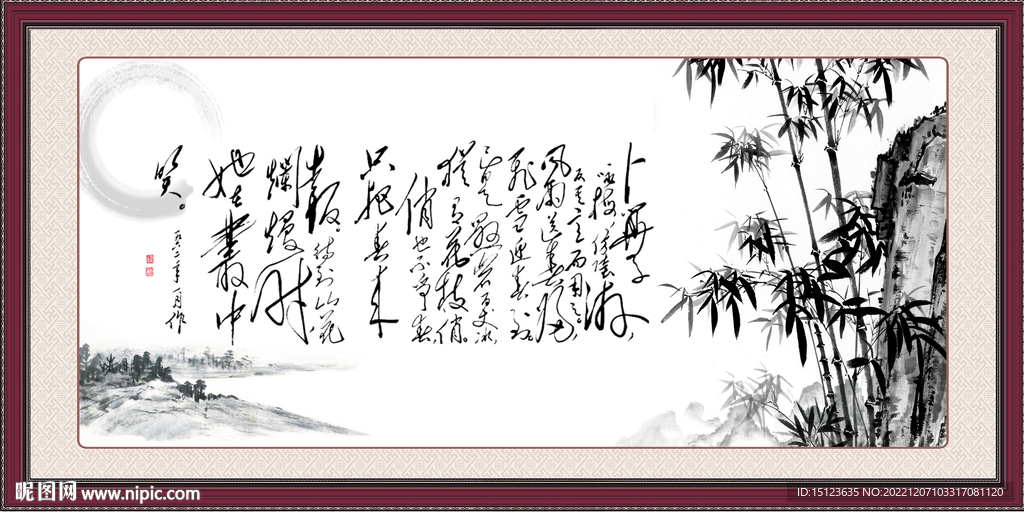 卜算子
咏梅、读陆游
反其意而用之,
風雨送春归
飛雪迎春到。
已是悬崖百丈冰,
犹有花枝俏。
俏也不争春,
只把春来
報。待到山花
爛熳时
她在叢中
笑。
月作
昵图网 www.nipic.com
ID:15123635 NO:20221207103317081120